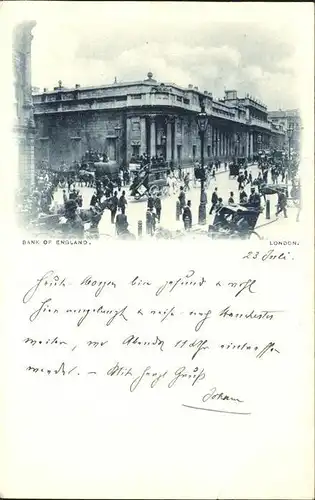 BANK OF ENGLAND.
LONDON.
23 Juli.
Heute Morgen bin gesund & wohl
hier angelangt & reise nach Manchester
weiter, wo Abends 11 Uhr eintreffen
werde. – Mit herzl Gruß
Johann